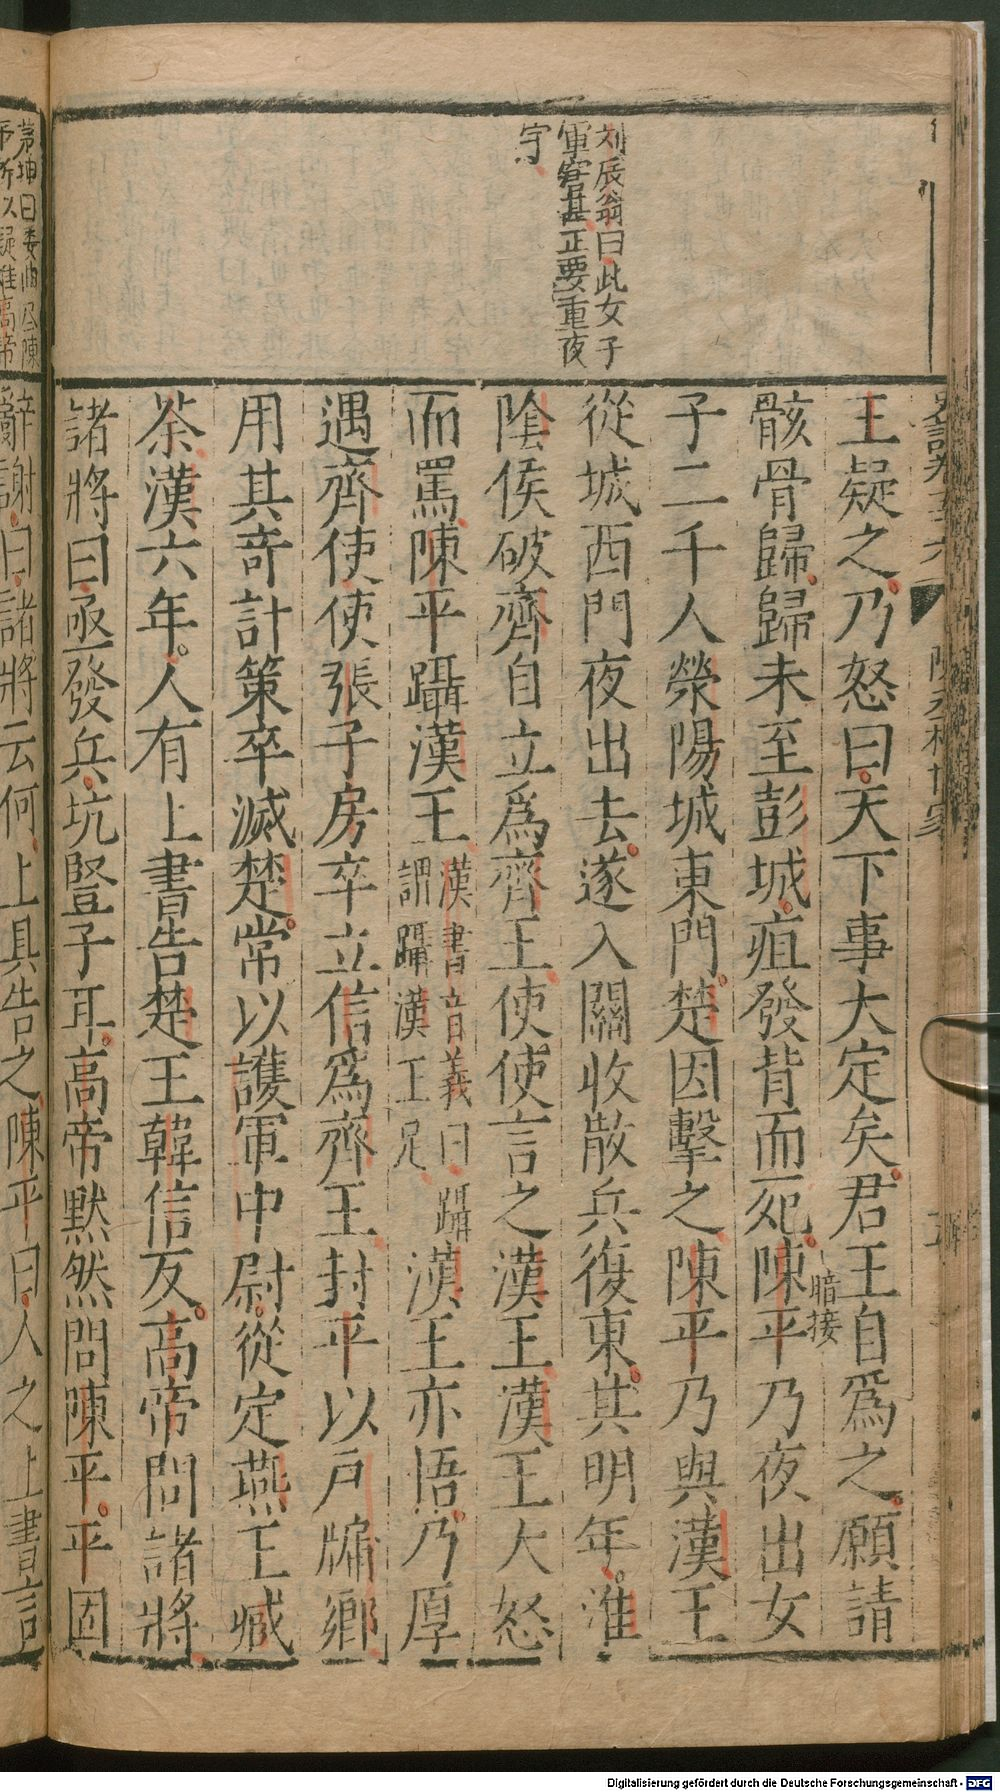 史記卷五十六
陳丞相世家
五
劉辰翁曰此女子
軍容甚正要重夜
字
王疑之乃怒曰天下事大定矣君王自爲之願請
骸骨歸歸未至彭城疽發背而死陳平乃夜出女
暗接
子二千人滎陽城東門楚因擊之陳平乃與漢王
從城西門夜出去遂入關收散兵復東其明年淮
陰侯破齊自立爲齊王使使言之漢王漢王大怒
而罵陳平躡漢王漢書音義曰躡謂躡漢王足漢王亦悟乃厚
遇齊使使張子房卒立信爲齊王封平以戶牖鄉
用其奇計策卒滅楚常以護軍中尉從定燕王臧
荼漢六年人有上書告楚王韓信反高帝問諸將
諸將曰亟發兵坑豎子耳高帝默然問陳平平固
茅坤曰委曲
陳
平所以疑難高帝
辭謝曰諸將云何上具告之陳平曰人之上書言
Digitalisierung gefördert durch die Deutsche Forschungsgemeinschaft - DFG